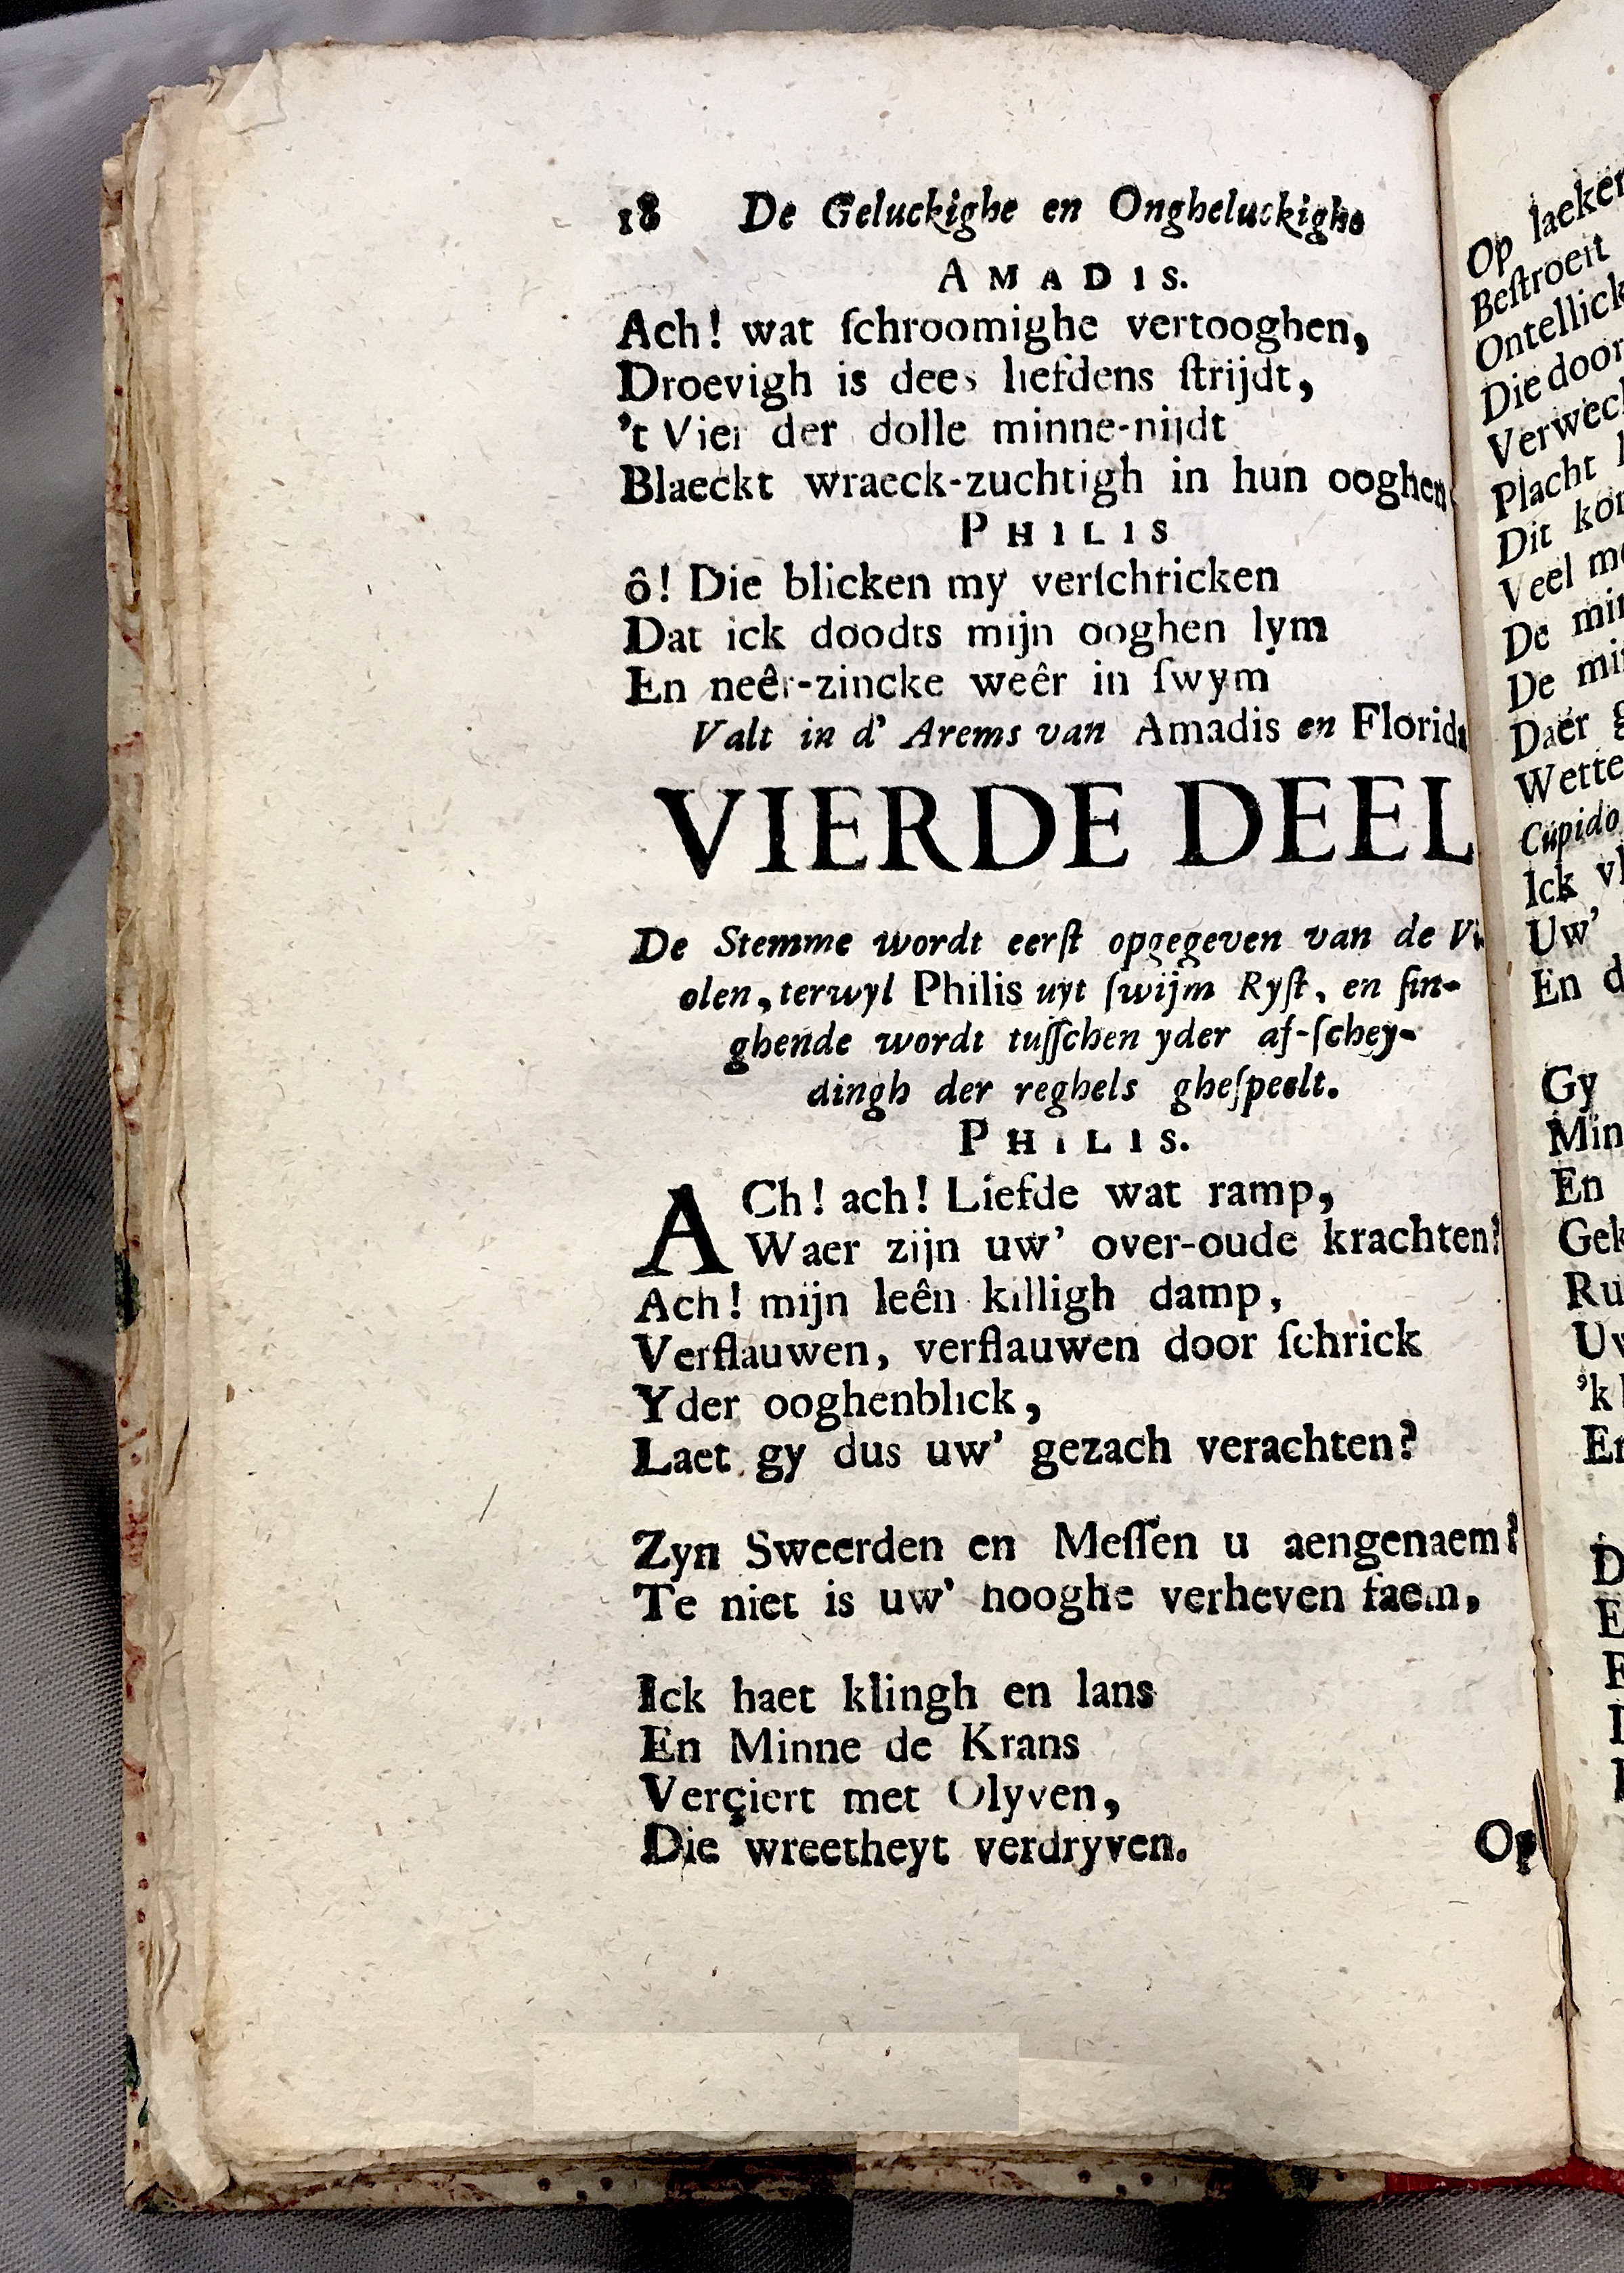 18 De Geluckighe en Ongheluckighe
AMADIS.
Ach! wat ſchroomighe vertooghen,
Droevigh is dees liefdens ſtrijdt,
't Vier der dolle minne-nijdt
Blaeckt wraeck-zuchtigh in hun ooghen
PHILIS
ô! Die blicken my verſchricken
Dat ick doodts mijn ooghen lym
En neêr-zincke weêr in ſwym
Valt in d' Arems van Amadis en Florida
VIERDE DEEL
De Stemme wordt eerſt opgegeven van de Vi-
olen, terwyl Philis uyt ſwijm Ryſt, en ſin-
ghende wordt tuſſchen yder af-ſchey-
dingh der reghels gheſpeelt.
PHILIS.
ACh! ach! Liefde wat ramp,
Waer zijn uw' over-oude krachten?
Ach! mijn leên killigh damp,
Verflauwen, verflauwen door ſchrick
Yder ooghenblick,
Laet gy dus uw' gezach verachten?
Zyn Sweerden en Meſſen u aengenaem?
Te niet is uw' hooghe verheven faem,
Ick haet klingh en lans
En Minne de Krans
Verçiert met Olyven,
Die wreetheyt verdryven.
Op
Op laeken
Beſtroeit
Ontellick
Die door
Verweck
Placht
Dit
Veel
De
De
Daer
Wette
Cupido
Ick
Uw'
En
Gy
Min
En
Gek
Ru
Uw
'k
En